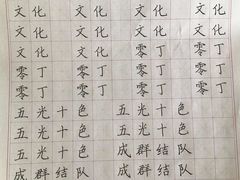 文化 文化 文化 文化
文化 文化 文化 文化
文化 文化 文化 零丁
零丁 零丁 零丁 零丁
零丁 零丁 零丁 零丁
五光十色 五光十色
五光十色 五光十色
五光十色 成群结队
成群结队 成群结队